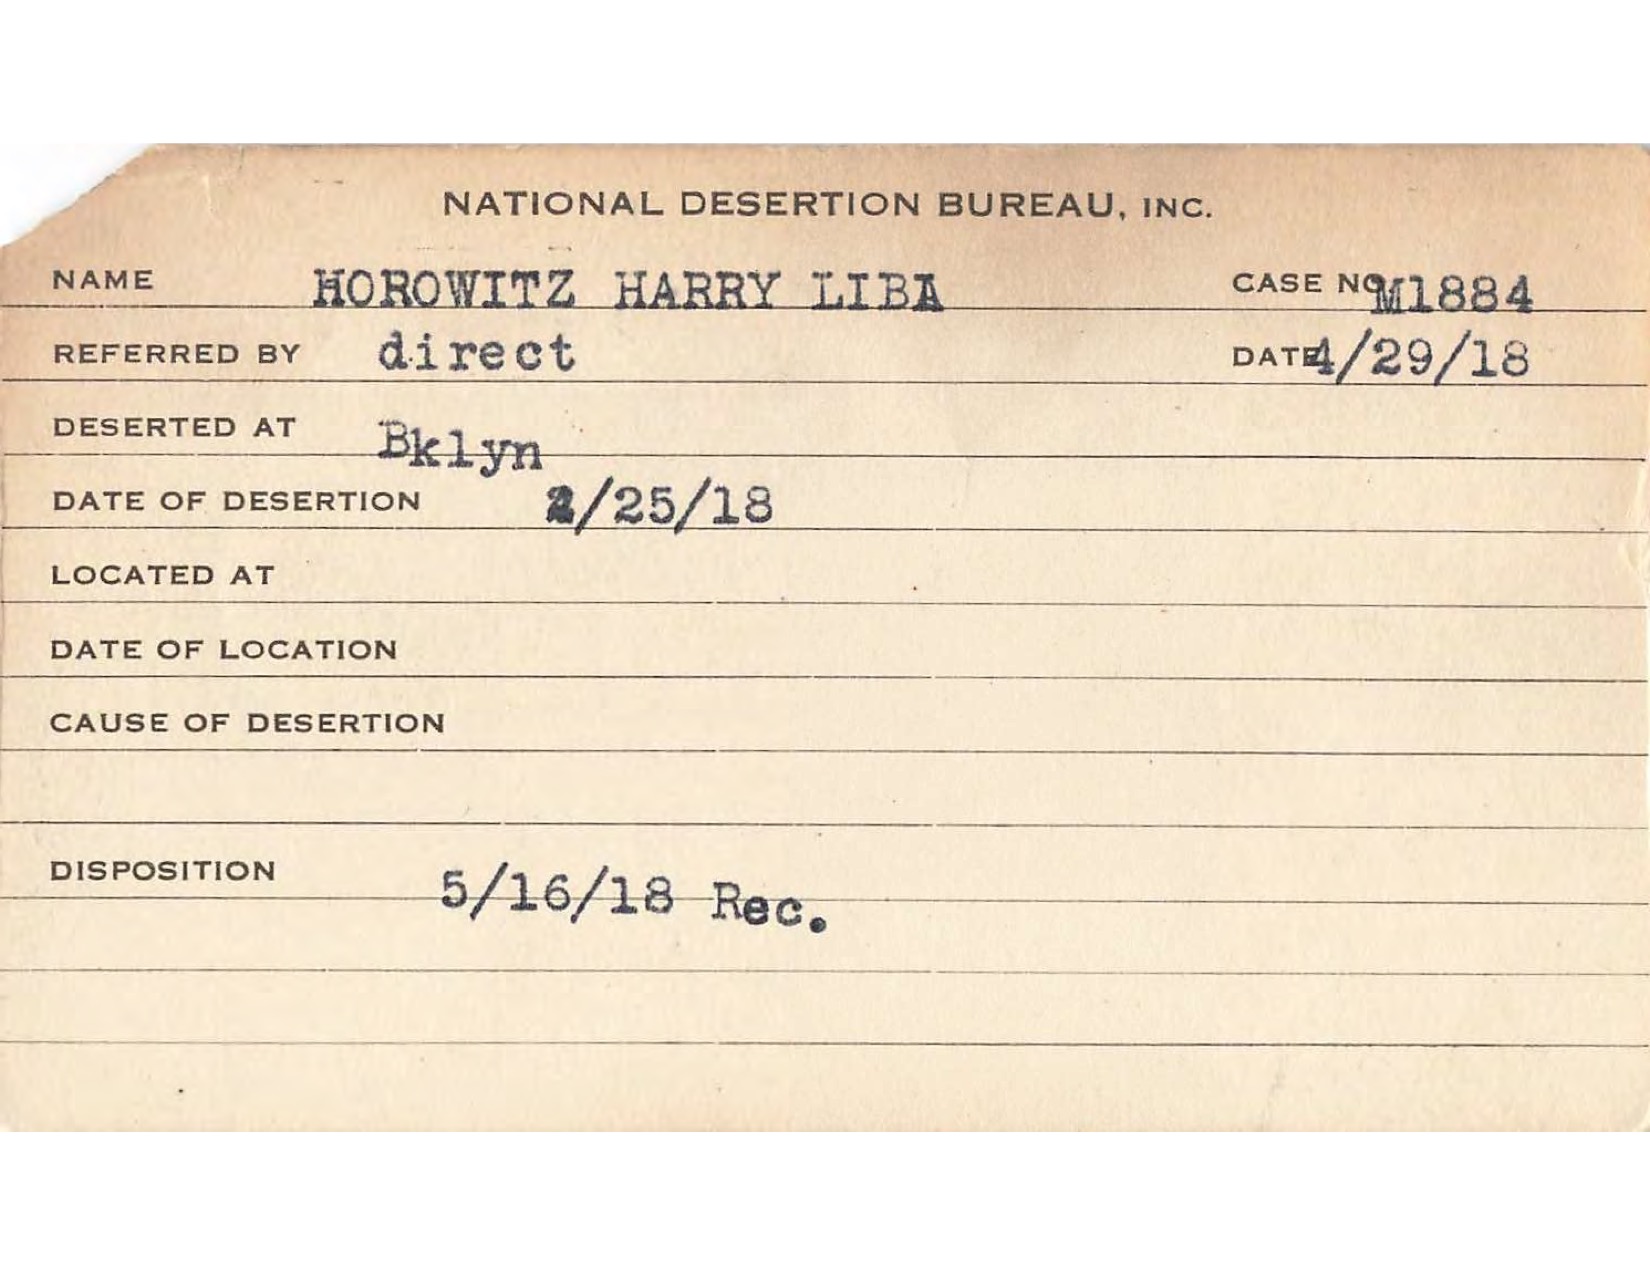 NATIONAL DESERTION BUREAU, INC.
NAME HOROWITZ HARRY LIBA CASE NO M1884
REFERRED BY direct DATE 4/29/18
DESERTED AT Bklyn
DATE OF DESERTION 2/25/18
LOCATED AT
DATE OF LOCATION
CAUSE OF DESERTION
DISPOSITION 5/16/18 Rec.